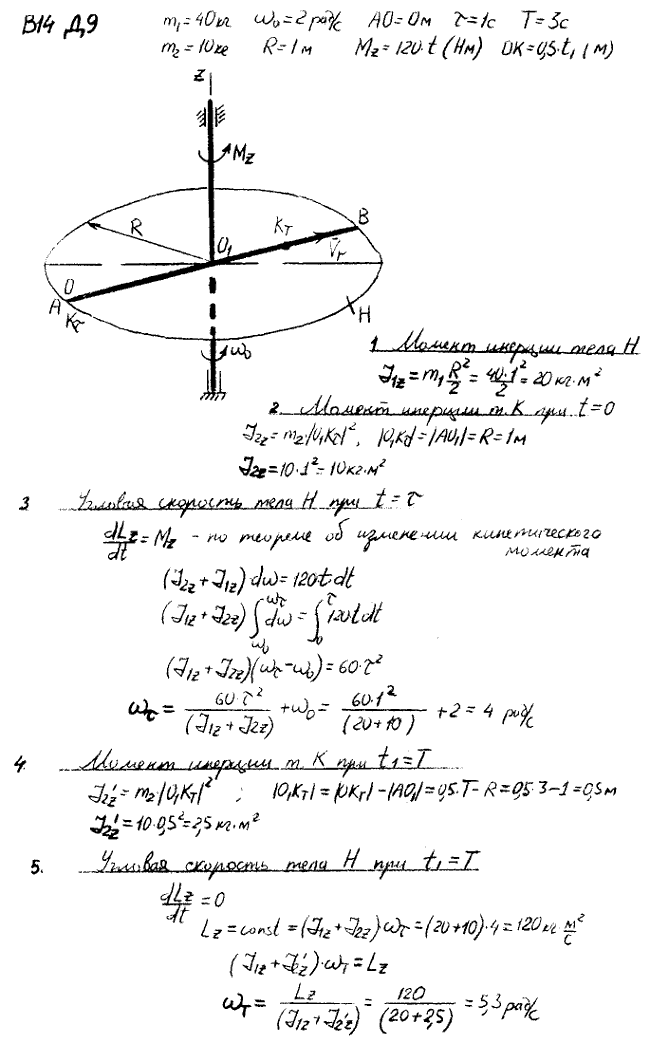 В14 Д9
m₁=40кг ω₀=2 рад/с AO=0м τ=1с T=3с
m₂=10кг R=1м M_z=120·t (Нм) OK=0,5·t₁ (м)
z
M_z
R
O₁
K_T
B
V̄r
O
A
K_τ
H
ω₀
1 Момент инерции тела H
J₁z=m₁R²/2=40·1²/2=20кг·м²
2. Момент инерции т. K при t=0
J₂z=m₂·|O₁K_τ|², |O₁K_τ|=|AO₁|=R=1м
J₂z=10·1²=10кг·м²
3 Угловая скорость тела H при t=τ
dLz/dt=Mz - по теореме об изменении кинетического
момента
(J₂z+J₁z)·dω=120·t·dt
(J₁z+J₂z)∫_ω₀^ωτ dω=∫_0^τ 120tdt
(J₁z+J₂z)(ωτ-ω₀)=60·τ²
ωτ=60·τ²/(J₁z+J₂z)+ω₀=60·1²/(20+10)+2=4 рад/с
4. Момент инерции т. K при t₁=T
J₂z'=m₂·|O₁K_T|² ; |O₁K_T|=|OK_T|-|AO₁|=0,5·T-R=0,5·3-1=0,5м
J₂z'=10·0,5²=2,5кг·м²
5. Угловая скорость тела H при t₁=T
dLz/dt=0
Lz=const=(J₁z+J₂z)ωτ=(20+10)·4=120кг м²/с
(J₁z+J₂z')·ω_T=Lz
ω_T=Lz/(J₁z+J₂z')=120/(20+2,5)=5,3рад/с